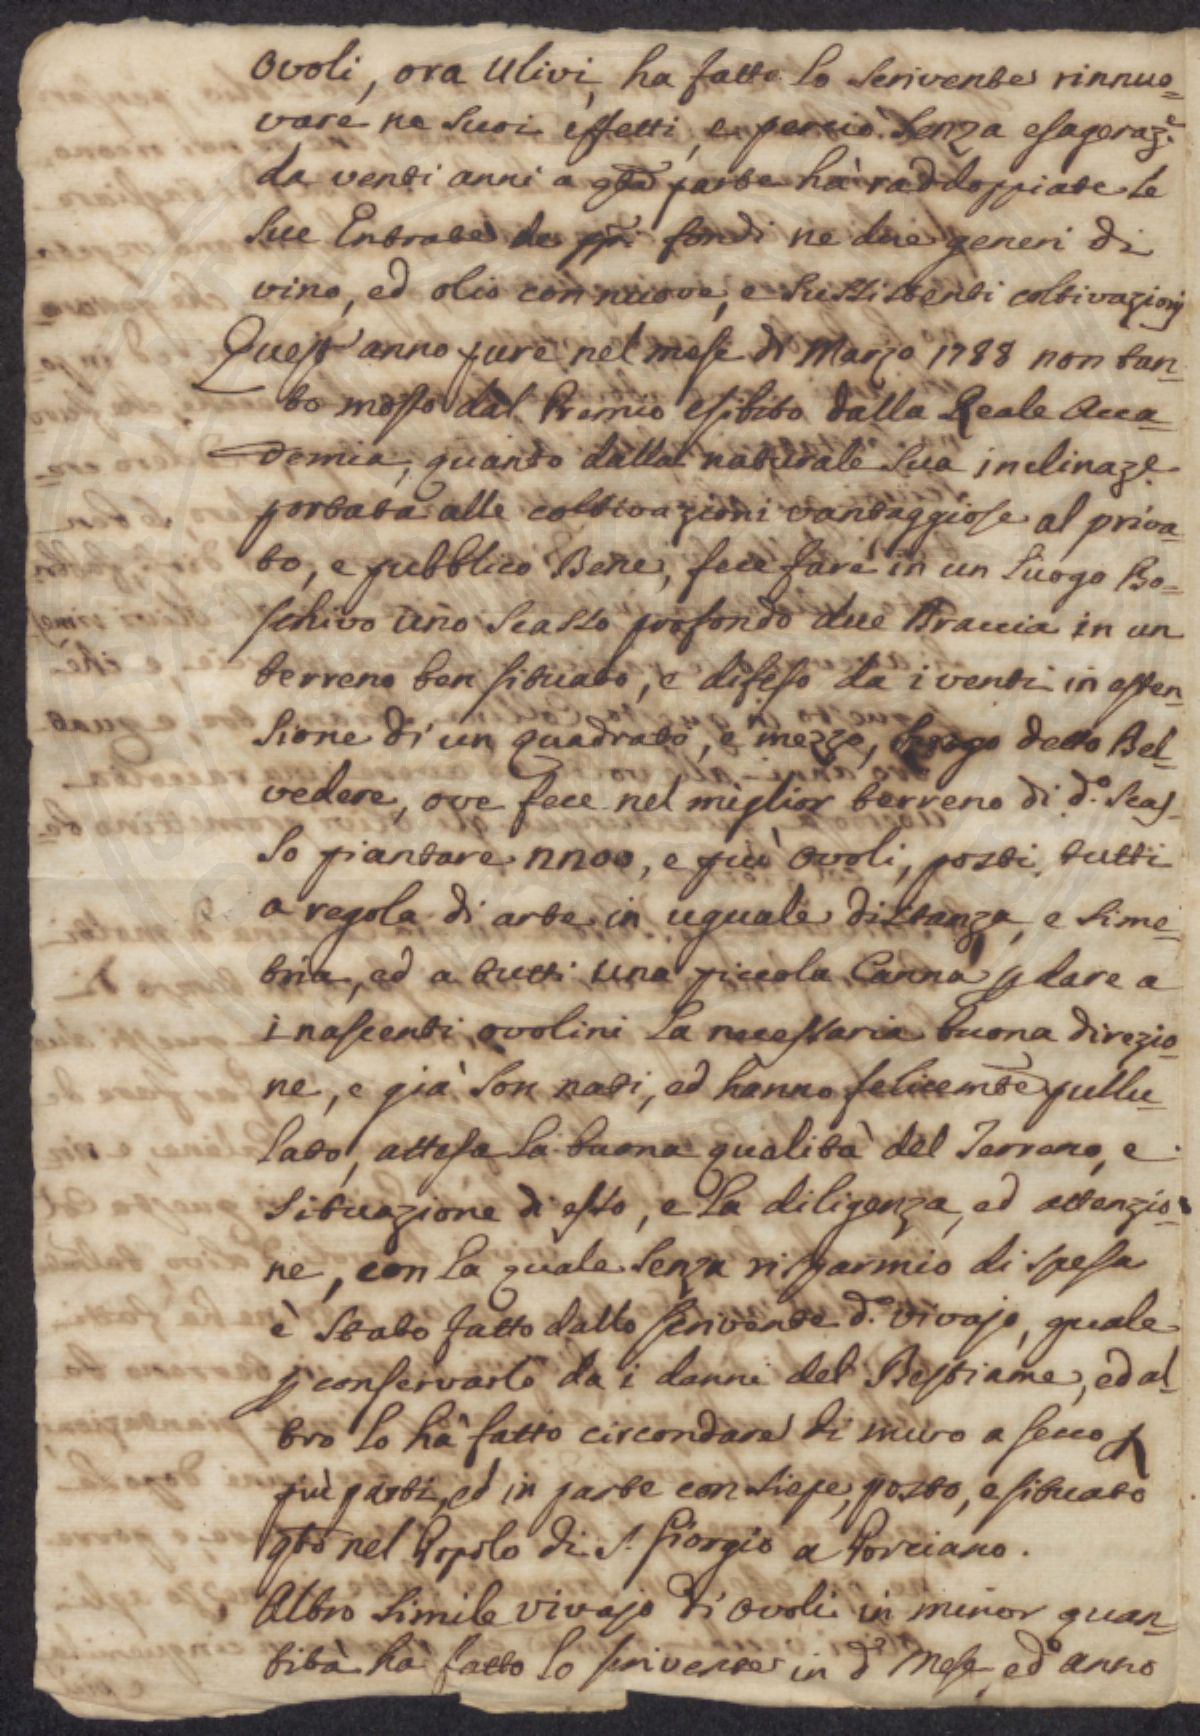 Ovoli, ora Ulivi, ha fatto lo scrivente rinnuo=
vare ne suoi effetti, e perciò senza esageraz.e
da venti anni a qta parte hà raddoppiate le
sue Entrate de ppri fondi ne due generi di
vino, ed olio con nuove, e sussistenti coltivazioni
Quest'anno pure nel mese di Marzo 1788 non tan=
to mosso dal Premio esibito dalla Reale Acca=
demia, quanto dalla naturale sua inclinaz.e
portata alle coltivazioni vantaggiose al priva=
to, e pubblico Bene, fece fare in un Luogo Bo=
schivo uno scasso profondo due Braccia in un
terreno ben situato, e difeso da i venti in esten=
sione di un quadrato, e mezzo, luogo detto Bel=
vedere, ove fece nel miglior terreno di d.o scas=
so piantare nnoo, e più ovoli, posti tutti
a regola di arte in uguale distanza, e sime=
tria, ed a tutti una piccola Canna p dare a
i nascenti ovolini la necessaria buona direzio=
ne, e già son nati, ed hanno felicemte pullu=
lato, attesa la buona qualità del Terreno, e
situazione di esso, e la diligenza, ed attenzio=
ne, con la quale senza risparmio di spesa
è stato fatto dallo scrivente d.o vivajo, quale
p conservarlo da i danni del Bestiame, ed al=
tro lo hà fatto circondare di muro a secco p
più parti, ed in parte con siepe, posto, e situato
qto nel Popolo di S. Giorgio a Porciano.
Altro simile vivajo di ovoli in minor quan=
tità ha fatto lo scrivente in d.o Mese, ed anno